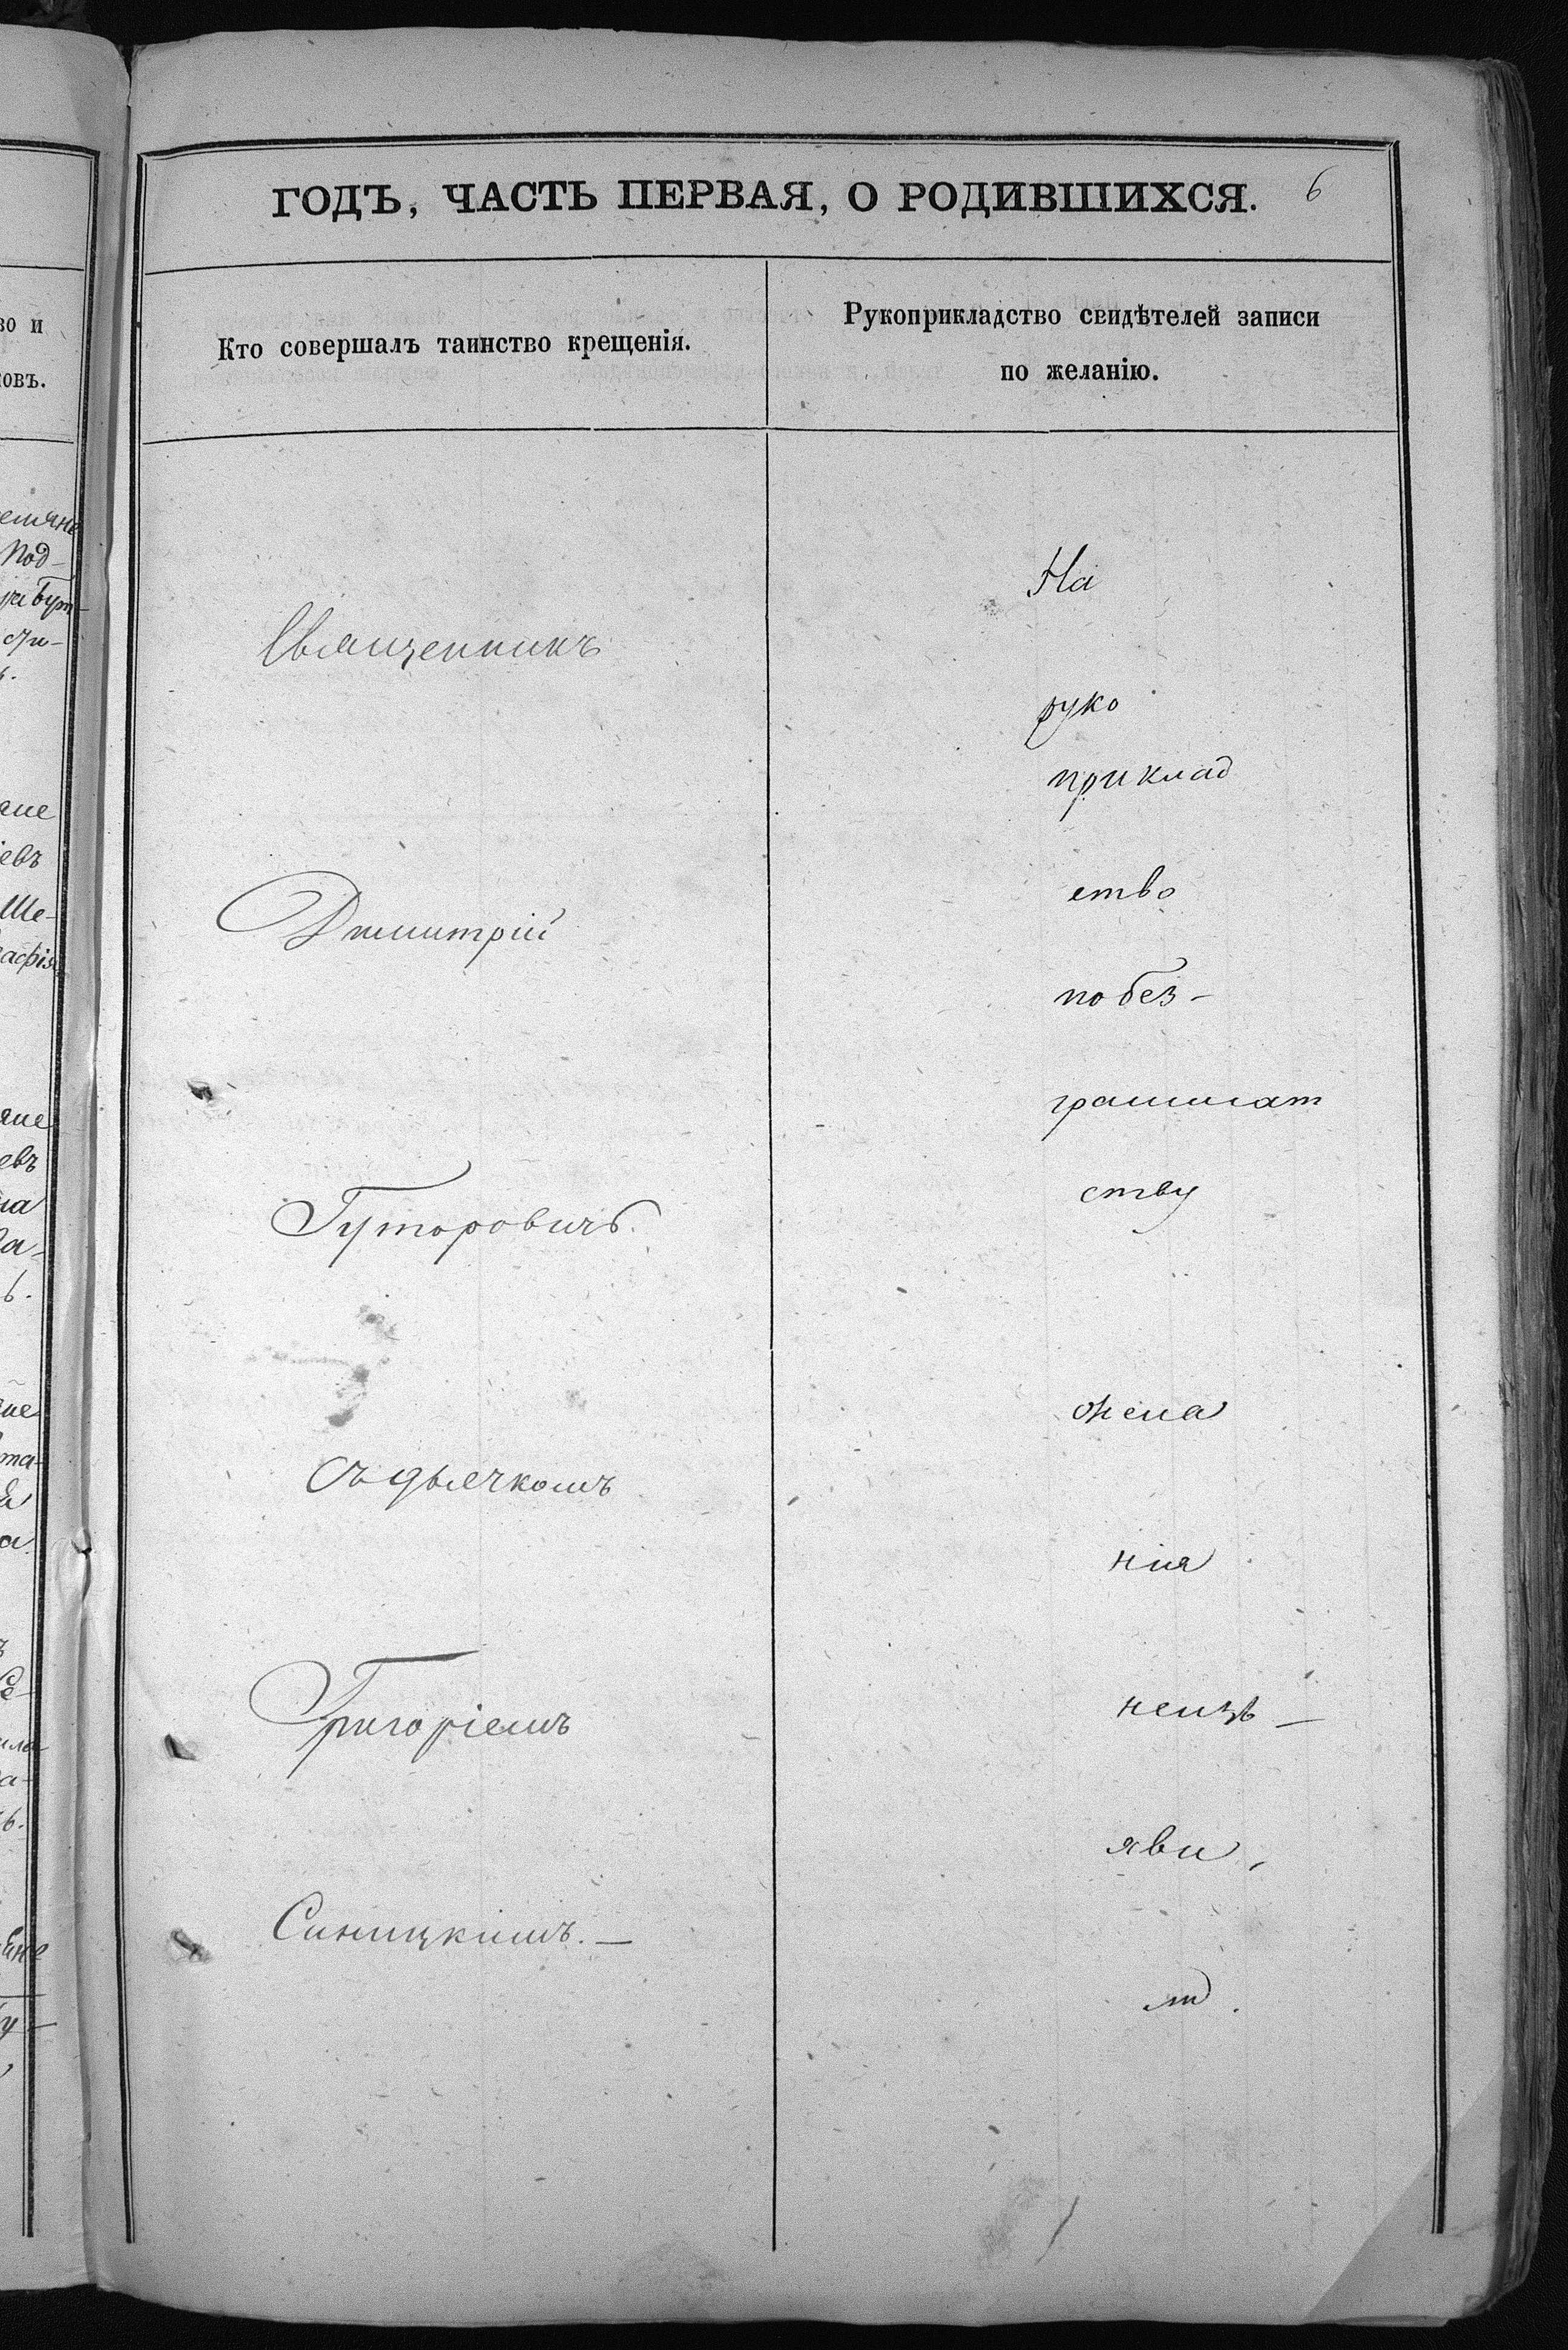 ГОДЪ, ЧАСТЬ ПЕРВАЯ, О РОДИВШИХСЯ. 6
Кто совершалъ таинство крещенія.
Рукоприкладство свидѣтелей записи
по желанію.
Священникъ
Димитрій
Гуторовичъ.
съ дьячкомъ
Григоріемъ
Синицкимъ. —
На
руко
приклад
ство
по без-
граммат
ству
жела
нія
неизъ —
яви
л.
во и
ловъ.
Под-
ане
іевъ
Ше-
афія
яне
евъ
на
ва-
та-